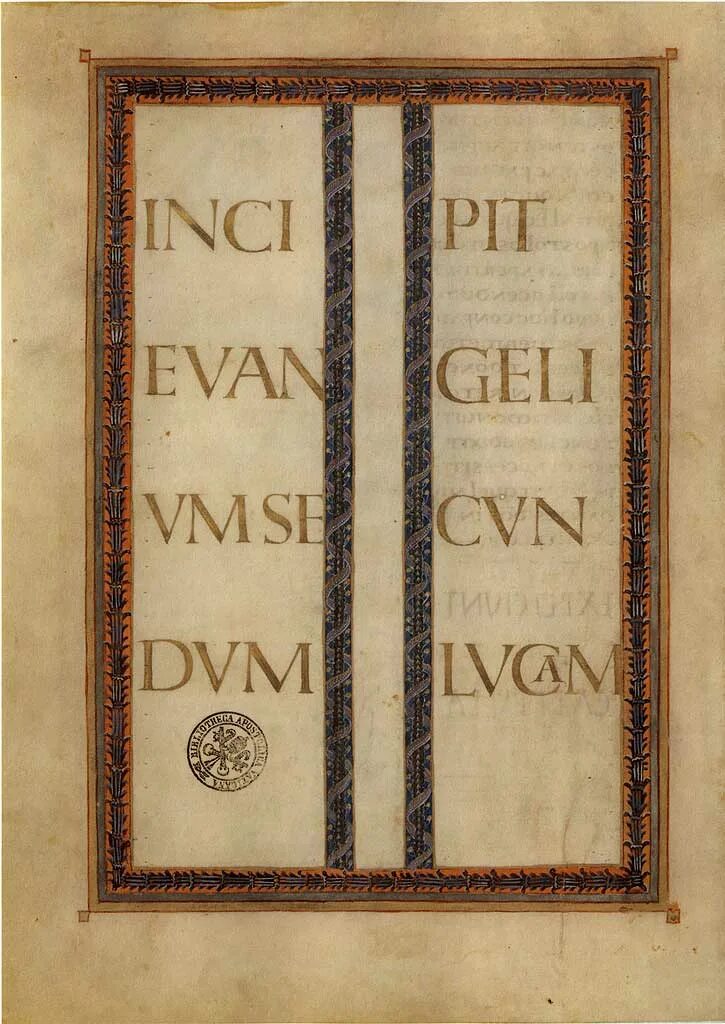 INCI PIT
EVAN GELI
VM SE CVN
DVM LVCAM
BIBLIOTHECA APOSTOLICA VATICANA